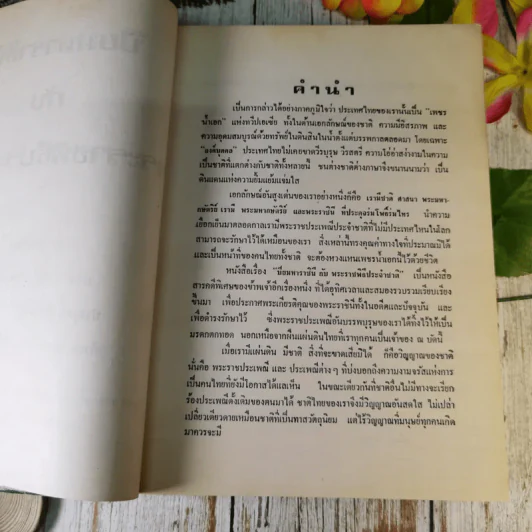 คำนำ
เป็นการกล่าวได้อย่างภาคภูมิใจว่า ประเทศไทยของเรานั้นเป็น "เพชร
น้ำเอก" แห่งทวีปเอเซีย ทั้งในด้านเอกลักษณ์ของชาติ ความมีอิสรภาพ และ
ความอุดมสมบูรณ์ด้วยทรัพย์ในดินสินในน้ำตั้งแต่บรรพกาลตลอดมา โดยเฉพาะ
ประเทศไทยไม่เคยขาดวีรบุรุษ วีรสตรี ความโอ่อ่าสง่างามในความ
เป็นชาติที่แตกต่างกับชาติทั้งหลายนี้ ชนต่างชาติต่างภาษาจึงขนานนามว่า เป็น
ดินแดนแห่งความยิ้มแย้มแจ่มใส
เอกลักษณ์อันสูงเด่นของเราอย่างหนึ่งก็คือ เรามีชาติ ศาสนา พระมหา-
กษัตริย์ เรามี พระมหากษัตริย์ และพระราชินี ที่ประดุจร่มโพธิ์ร่มไทร นำความ
เยือกเย็นมาตลอดกาลเรามีพระราชประเพณีประจำชาติที่ไม่มีประเทศไหนในโลก
สามารถจะรักษาไว้ได้เหมือนของเรา สิ่งเหล่านี้ทรงคุณค่าทางใจที่ประมาณมิได้
และเป็นหน้าที่ของคนไทยทั้งชาติ จะต้องหวงแหนเพชรน้ำเอกนี้ไว้ด้วยชีวิต
หนังสือเรื่อง "ปิยมหาราชินี กับ พระราชพิธีประจำชาติ" เป็นหนังสือ
สารคดีพิเศษของข้าพเจ้าอีกเรื่องหนึ่ง ที่ได้อุทิศเวลาและสมองรวบรวมเรียบเรียง
ขึ้นมา เพื่อประกาศพระเกียรติคุณของพระราชินีทั้งในอดีตและปัจจุบัน และ
เพื่อดำรงรักษาไว้ ซึ่งพระราชประเพณีอันบรรพบุรุษของเราได้ทิ้งไว้ให้เป็น
มรดกตกทอด นอกเหนือจากผืนแผ่นดินไทยที่เราทุกคนเป็นเจ้าของ ณ บัดนี้
เมื่อเรามีแผ่นดิน มีชาติ สิ่งที่จะขาดเสียมิได้ ก็คือวิญญาณของชาติ
นั่นคือ พระราชประเพณี และ ประเพณีต่าง ๆ ที่บ่งบอกถึงความงามจรัสแห่งการ
เป็นคนไทยที่ยังมีโอกาสได้แลเห็น ในขณะเดียวกันที่ชาติอื่นไม่มีทางจะเรียก
ร้องประเพณีดั้งเดิมของตนมาได้ ชาติไทยของเราจึงมีวิญญาณอันสดใส ไม่เปล่า
เปลี่ยวเดียวดายเหมือนชาติที่เป็นทาสวัตถุนิยม แต่ไร้วิญญาณที่มนุษย์ทุกคนเกิด
มาควรจะมี